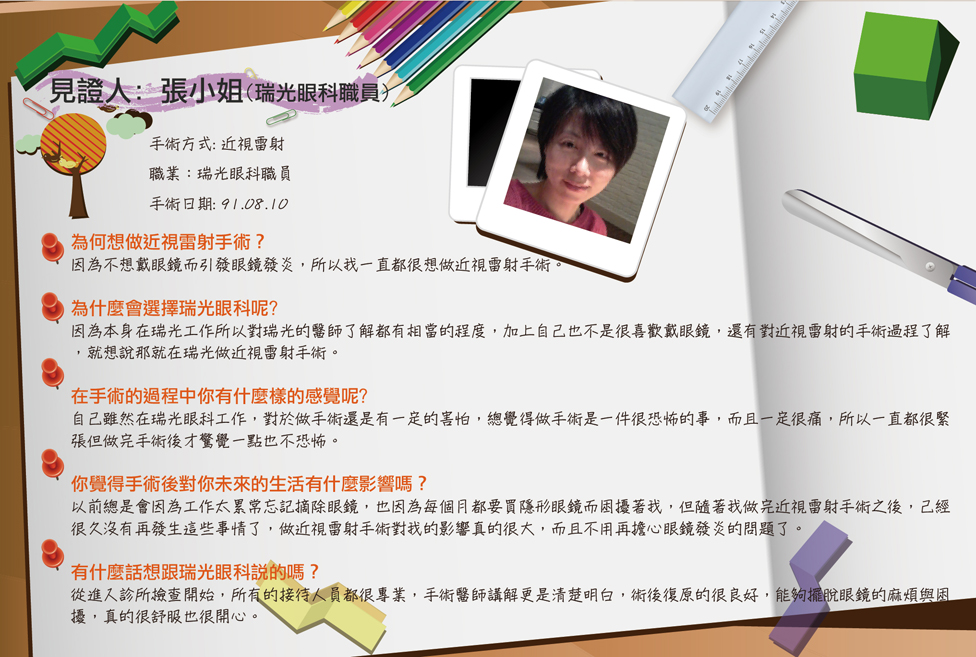 見證人: 張小姐(瑞光眼科職員)
手術方式: 近視雷射
職業：瑞光眼科職員
手術日期: 91.08.10
為何想做近視雷射手術？
因為不想戴眼鏡而引發眼鏡發炎，所以我一直都很想做近視雷射手術。
為什麼會選擇瑞光眼科呢?
因為本身在瑞光工作所以對瑞光的醫師了解都有相當的程度，加上自己也不是很喜歡戴眼鏡，還有對近視雷射的手術過程了解
，就想說那就在瑞光做近視雷射手術。
在手術的過程中你有什麼樣的感覺呢?
自己雖然在瑞光眼科工作，對於做手術還是有一定的害怕，總覺得做手術是一件很恐怖的事，而且一定很痛，所以一直都很緊
張但做完手術後才驚覺一點也不恐怖。
你覺得手術後對你未來的生活有什麼影響嗎？
以前總是會因為工作太累常忘記摘除眼鏡，也因為每個月都要買隱形眼鏡而困擾著我，但隨著我做完近視雷射手術之後，己經
很久沒有再發生這些事情了，做近視雷射手術對我的影響真的很大，而且不用再擔心眼鏡發炎的問題了。
有什麼話想跟瑞光眼科說的嗎？
從進入診所檢查開始，所有的接待人員都很專業，手術醫師講解更是清楚明白，術後復原的很良好，能夠擺脫眼鏡的麻煩與困
擾，真的很舒服也很開心。